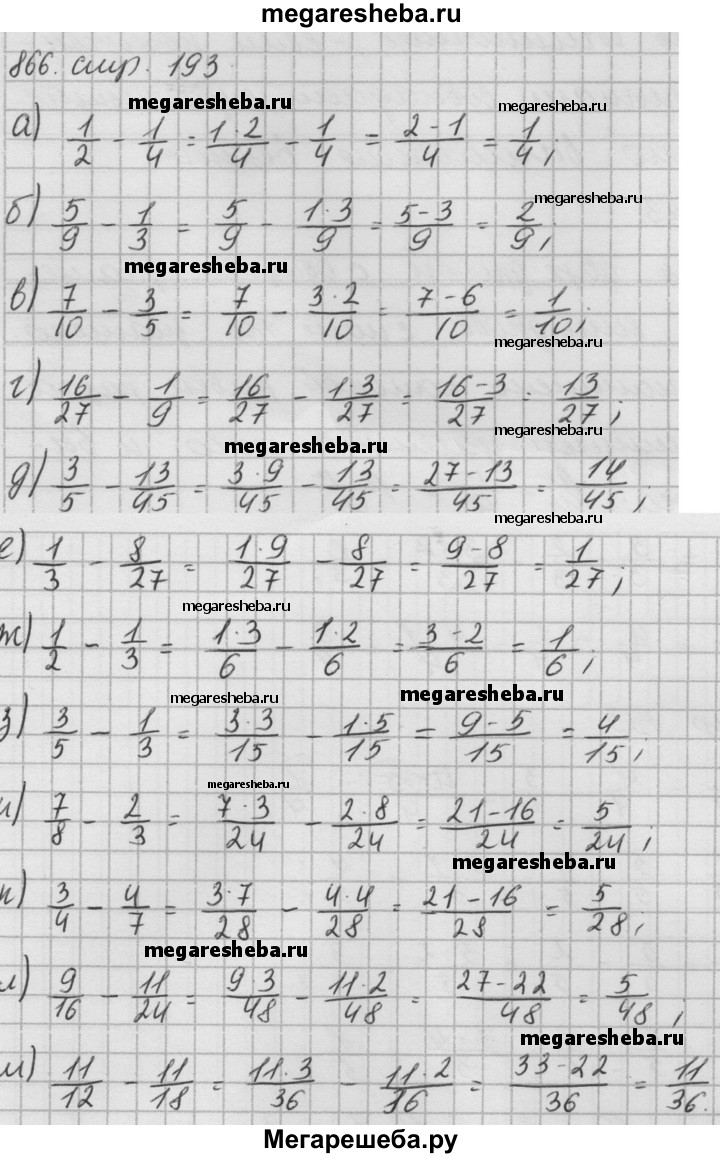 megaresheba.ru
866. стр. 193
megaresheba.ru
megaresheba.ru
а) 1/2 - 1/4 = 1·2/4 - 1/4 = 2-1/4 = 1/4;
megaresheba.ru
б) 5/9 - 1/3 = 5/9 - 1·3/9 = 5-3/9 = 2/9;
megaresheba.ru
в) 7/10 - 3/5 = 7/10 - 3·2/10 = 7-6/10 = 1/10;
megaresheba.ru
г) 16/27 - 1/9 = 16/27 - 1·3/27 = 16-3/27 = 13/27;
megaresheba.ru
megaresheba.ru
д) 3/5 - 13/45 = 3·9/45 - 13/45 = 27-13/45 = 14/45;
megaresheba.ru
е) 1/3 - 8/27 = 1·9/27 - 8/27 = 9-8/27 = 1/27;
megaresheba.ru
ж) 1/2 - 1/3 = 1·3/6 - 1·2/6 = 3-2/6 = 1/6;
megaresheba.ru
megaresheba.ru
з) 3/5 - 1/3 = 3·3/15 - 1·5/15 = 9-5/15 = 4/15;
megaresheba.ru
и) 7/8 - 2/3 = 7·3/24 - 2·8/24 = 21-16/24 = 5/24;
megaresheba.ru
к) 3/4 - 4/7 = 3·7/28 - 4·4/28 = 21-16/28 = 5/28;
megaresheba.ru
л) 9/16 - 11/24 = 9 3/48 - 11·2/48 = 27-22/48 = 5/48;
megaresheba.ru
м) 11/12 - 11/18 = 11·3/36 - 11·2/36 = 33-22/36 = 11/36.
Мегарешеба.ру